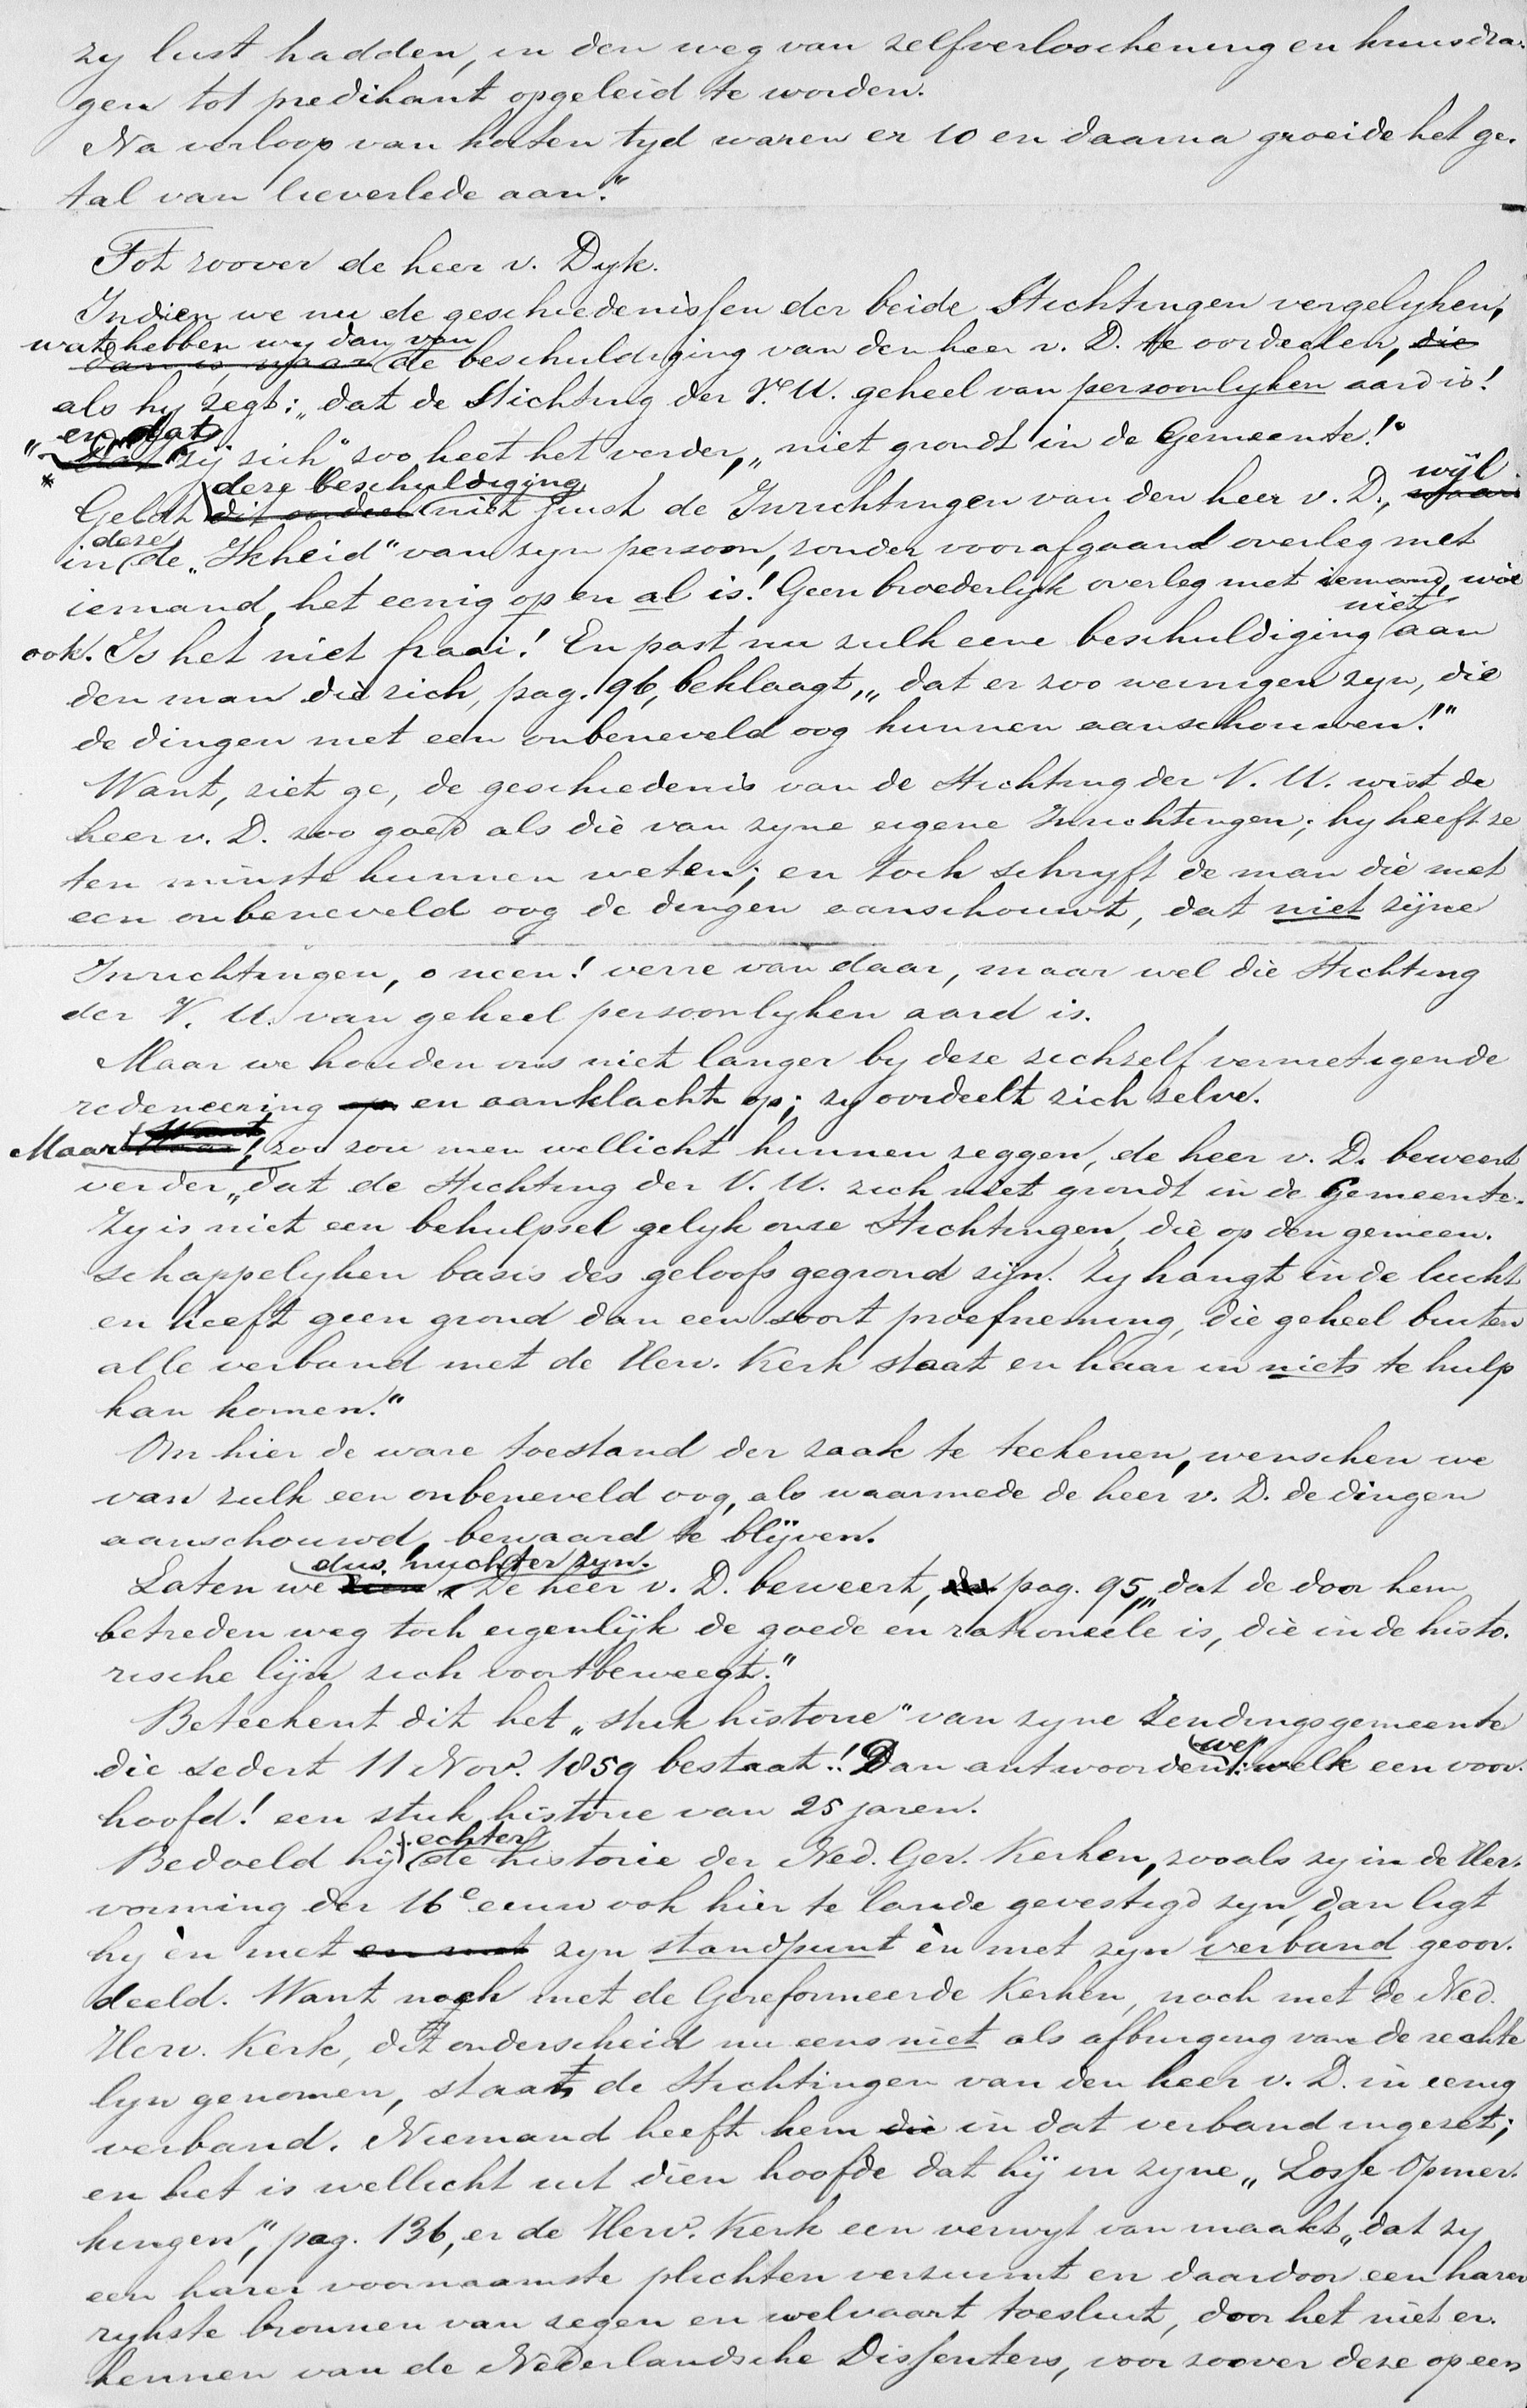 zy lust hadden, in den weg van zelfverloochening en kruisdra-
gen tot predikant opgeleid te worden.
Na verloop van korten tyd waren er 10 en daarna groeide het ge-
tal van lieverlede aan."
Tot zoover de heer v. Dyk.
Indien we nu de geschiedenissen der beide Stichtingen vergelyken,
wat hebben wy dan van
dan is waar de beschuldiging van den heer v. D. te oordeelen, die
als hy zegt: „dat de Stichting der V. U. geheel van persoonlyken aard is!
en dat
„zij zich" zoo heet het verder, „niet grondt in de Gemeente!"
deze beschuldiging wijl
Geldt dit oordeel niet juist de Inrichtingen van den heer v. D., waar
deze
in de „Ikheid" van zyn persoon, zonder voorafgaand overleg met
iemand, het eenig op en al is! Geen broederlyk overleg met iemand, wie
niet
ook. Is het niet fraai! En past nu zulk eene beschuldiging aan
den man die zich, pag. 96, beklaagt, „dat er zoo weinigen zyn, die
de dingen met een onbeneveld oog kunnen aanschouwen!"
Want, ziet ge, de geschiedenis van de Stichting der V. U. wist de
heer v. D. zoo goed als die van zyne eigene Inrichtingen; hy heeft ze
ten minste kunnen weten; en toch schryft de man die met
een onbeneveld oog de dingen aanschouwt, dat niet zijne
Inrichtingen, o neen! verre van daar, maar wel die Stichting
der V. U. van geheel persoonlyken aard is.
Maar we houden ons niet langer by deze zichzelf vernietigende
redeneering op en aanklacht op; zy oordeelt zich zelve.
Want
Maar! zoo zou men wellicht kunnen zeggen, de heer v. D. beweert
verder „dat de Stichting der V. U. zich niet grondt in de Gemeente.
Zy is niet een behulpsel gelyk onze Stichtingen, die op den gemeen-
schappelyken basis des geloofs gegrond zijn. Zy hangt in de lucht
en heeft geen grond dan een soort proefneming, die geheel buiten
alle verband met de Herv. Kerk staat en haar in niets te hulp
kan komen."
Om hier de ware toestand der zaak te teekenen, wenschen we
van zulk een onbeneveld oog, als waarmede de heer v. D. de dingen
aanschouwd, bewaard te blijven.
dus nuchter zyn.
Laten we zien De heer v. D. beweert, pag. 95, „dat de door hem
betreden weg toch eigenlijk de goede en rationeele is, die in de histo-
rische lijn zich voortbeweegt."
Beteekent dit het „stuk historie" van zyne Zendingsgemeente
we
die sedert 11 Nov. 1859 bestaat!! Dan antwoorden: welk een voor-
hoofd! een stuk historie van 25 jaren.
echter
Bedoeld hij de historie der Ned. Ger. Kerken, zooals zy in de Her-
vorming der 16e eeuw ook hier te lande gevestigd zyn, dan ligt
hy èn met en met zyn standpunt èn met zyn verband geoor-
deeld. Want noch met de Gereformeerde Kerken, noch met de Ned.
Herv. Kerk, dit onderscheid nu eens niet als afbuiging van de rechte
lyn genomen, staat de Stichtingen van den heer v. D. in eenig
verband. Niemand heeft hem die in dat verband ingezet;
en het is wellicht uit dien hoofde dat hij in zyne „Losse Opmer-
kingen", pag. 136, er de Herv. Kerk een verwyt van maakt „dat zy
een harer voornaamste plichten verzuimt en daardoor een harer
rykste bronnen van zegen en welvaart toesluit, door het niet er-
kennen van de Nederlandsche Dissenters, voor zoover deze op een